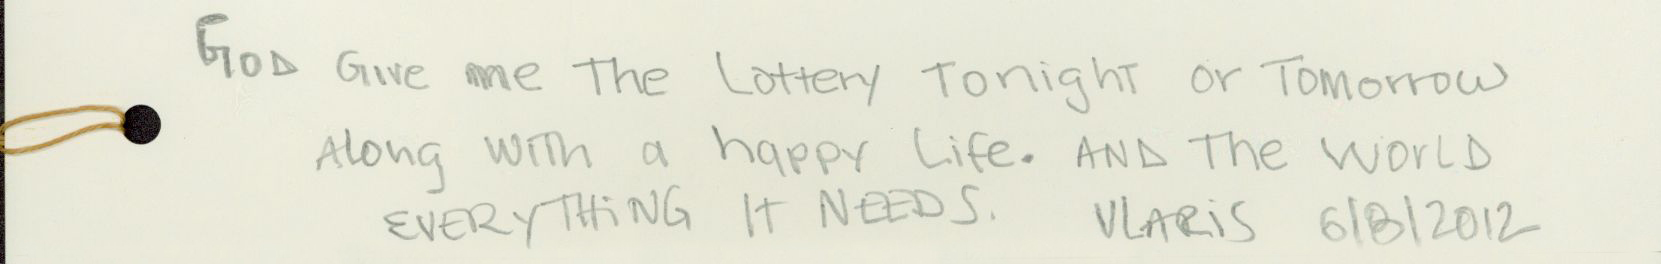 GOD Give me The Lottery Tonight or Tomorrow
Along with a happy Life. AND The WORLD
EVERYTHING IT NEEDS. VLARIS 6/8/2012